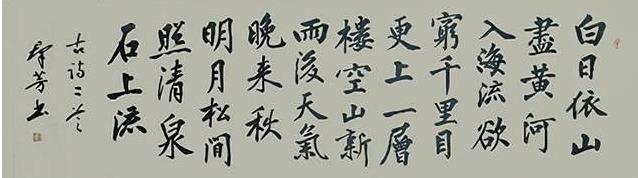 白日依山
盡黄河
入海流欲
窮千里目
更上一層
楼空山新
雨後天氣
晚来秋
明月松間
照清泉
石上流
古詩二首
芳书